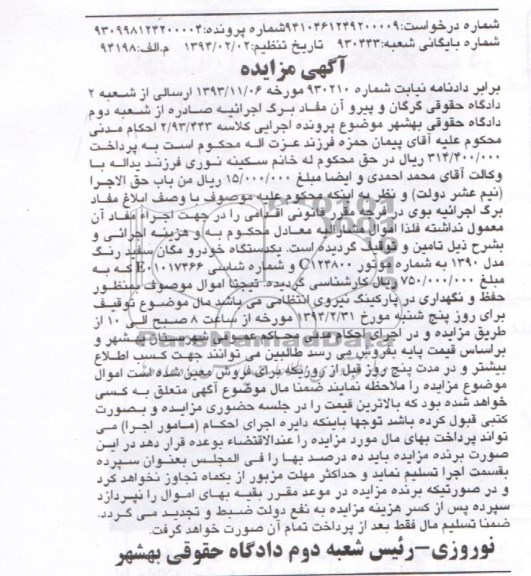 شماره درخواست:۹۴۱۰۴۶۱۲۴۹۲۰۰۰۰۹شماره پرونده:۹۳۰۹۹۸۱۲۴۲۰۰۰۰۴
شماره بایگانی شعبه:۹۳۰۴۴۳ تاریخ تنظیم:۱۳۹۴/۰۲/۰۲ م.الف:۹۴۱۹۸
آگهی مزایده
برابر دادنامه نیابت شماره ۹۳۰۲۱۰ مورخه ۱۳۹۳/۱۱/۰۶ ارسالی از شعبه ۲
دادگاه حقوقی گرگان و پیرو آن مفاد برگ اجرائیه صادره از شعبه دوم
دادگاه حقوقی بهشهر موضوع پرونده اجرایی کلاسه ۲/۹۳/۴۴۳ احکام مدنی
محکوم علیه آقای پیمان حمزه فرزند عزت اله محکوم است به پرداخت
۳۱۴/۴۰۰/۰۰۰ ریال در حق محکوم له خانم سکینه نوری فرزند یداله با
وکالت آقای محمد احمدی و ایضا مبلغ ۱۵/۰۰۰/۰۰۰ ریال من باب حق الاجرا
(نیم عشر دولت) و نظر به اینکه محکوم علیه موصوف با وصف ابلاغ مفاد
برگ اجرائیه بوی در فرجه مقرر قانونی اقدامی را در جهت اجراء مفاد آن
معمول نداشته فلذا اموال مشارالیه معادل محکوم به و هزینه اجرائی و
بشرح ذیل تامین و توقیف گردیده است. یکدستگاه خودرو مگان سفید رنگ
مدل ۱۳۹۰ به شماره موتور C۱۲۳۸۰۰ و شماره شاسی E۰۱۰۱۷۴۶۶ که به
مبلغ ۷۵۰/۰۰۰/۰۰۰ ریال کارشناسی گردیده. نتیجتا اموال موصوف بمنظور
حفظ و نگهداری در پارکینگ نیروی انتظامی می باشد مال موضوع توقیف
برای روز پنج شنبه مورخ ۱۳۹۴/۲/۳۱ مورخه از ساعت ۸ صبح الی ۱۰ از
طریق مزایده و در اجرای احکام مدنی محاکم عمومی شهرستان بهشهر و
براساس قیمت پایه بفروش می رسد طالبین می توانند جهت کسب اطلاع
بیشتر و در مدت پنج روز قبل از روزیکه برای فروش معین شده است اموال
موضوع مزایده را ملاحظه نمایند ضمنا مال موضوع آگهی متعلق به کسی
خواهد شده بود که بالاترین قیمت را در جلسه حضوری مزایده و بصورت
کتبی قبول کرده باشد توجها باینکه دایره اجرای احکام (مامور اجرا) می
تواند پرداخت بهای مال مورد مزایده را عندالاقتضاء بوعده قرار دهد در این
صورت برنده مزایده باید ده درصد بها را فی المجلس بعنوان سپرده
بقسمت اجرا تسلیم نماید و حداکثر مهلت مزبور از یکماه تجاوز نخواهد کرد
و در صورتیکه برنده مزایده در موعد مقرر بقیه بهای اموال را نپردازد
سپرده پس از کسر هزینه مزایده به نفع دولت ضبط و تجدید می گردد.
ضمنا تسلیم مال فقط بعد از پرداخت تمام آن صورت خواهد گرفت.
نوروزی–رئیس شعبه دوم دادگاه حقوقی بهشهر